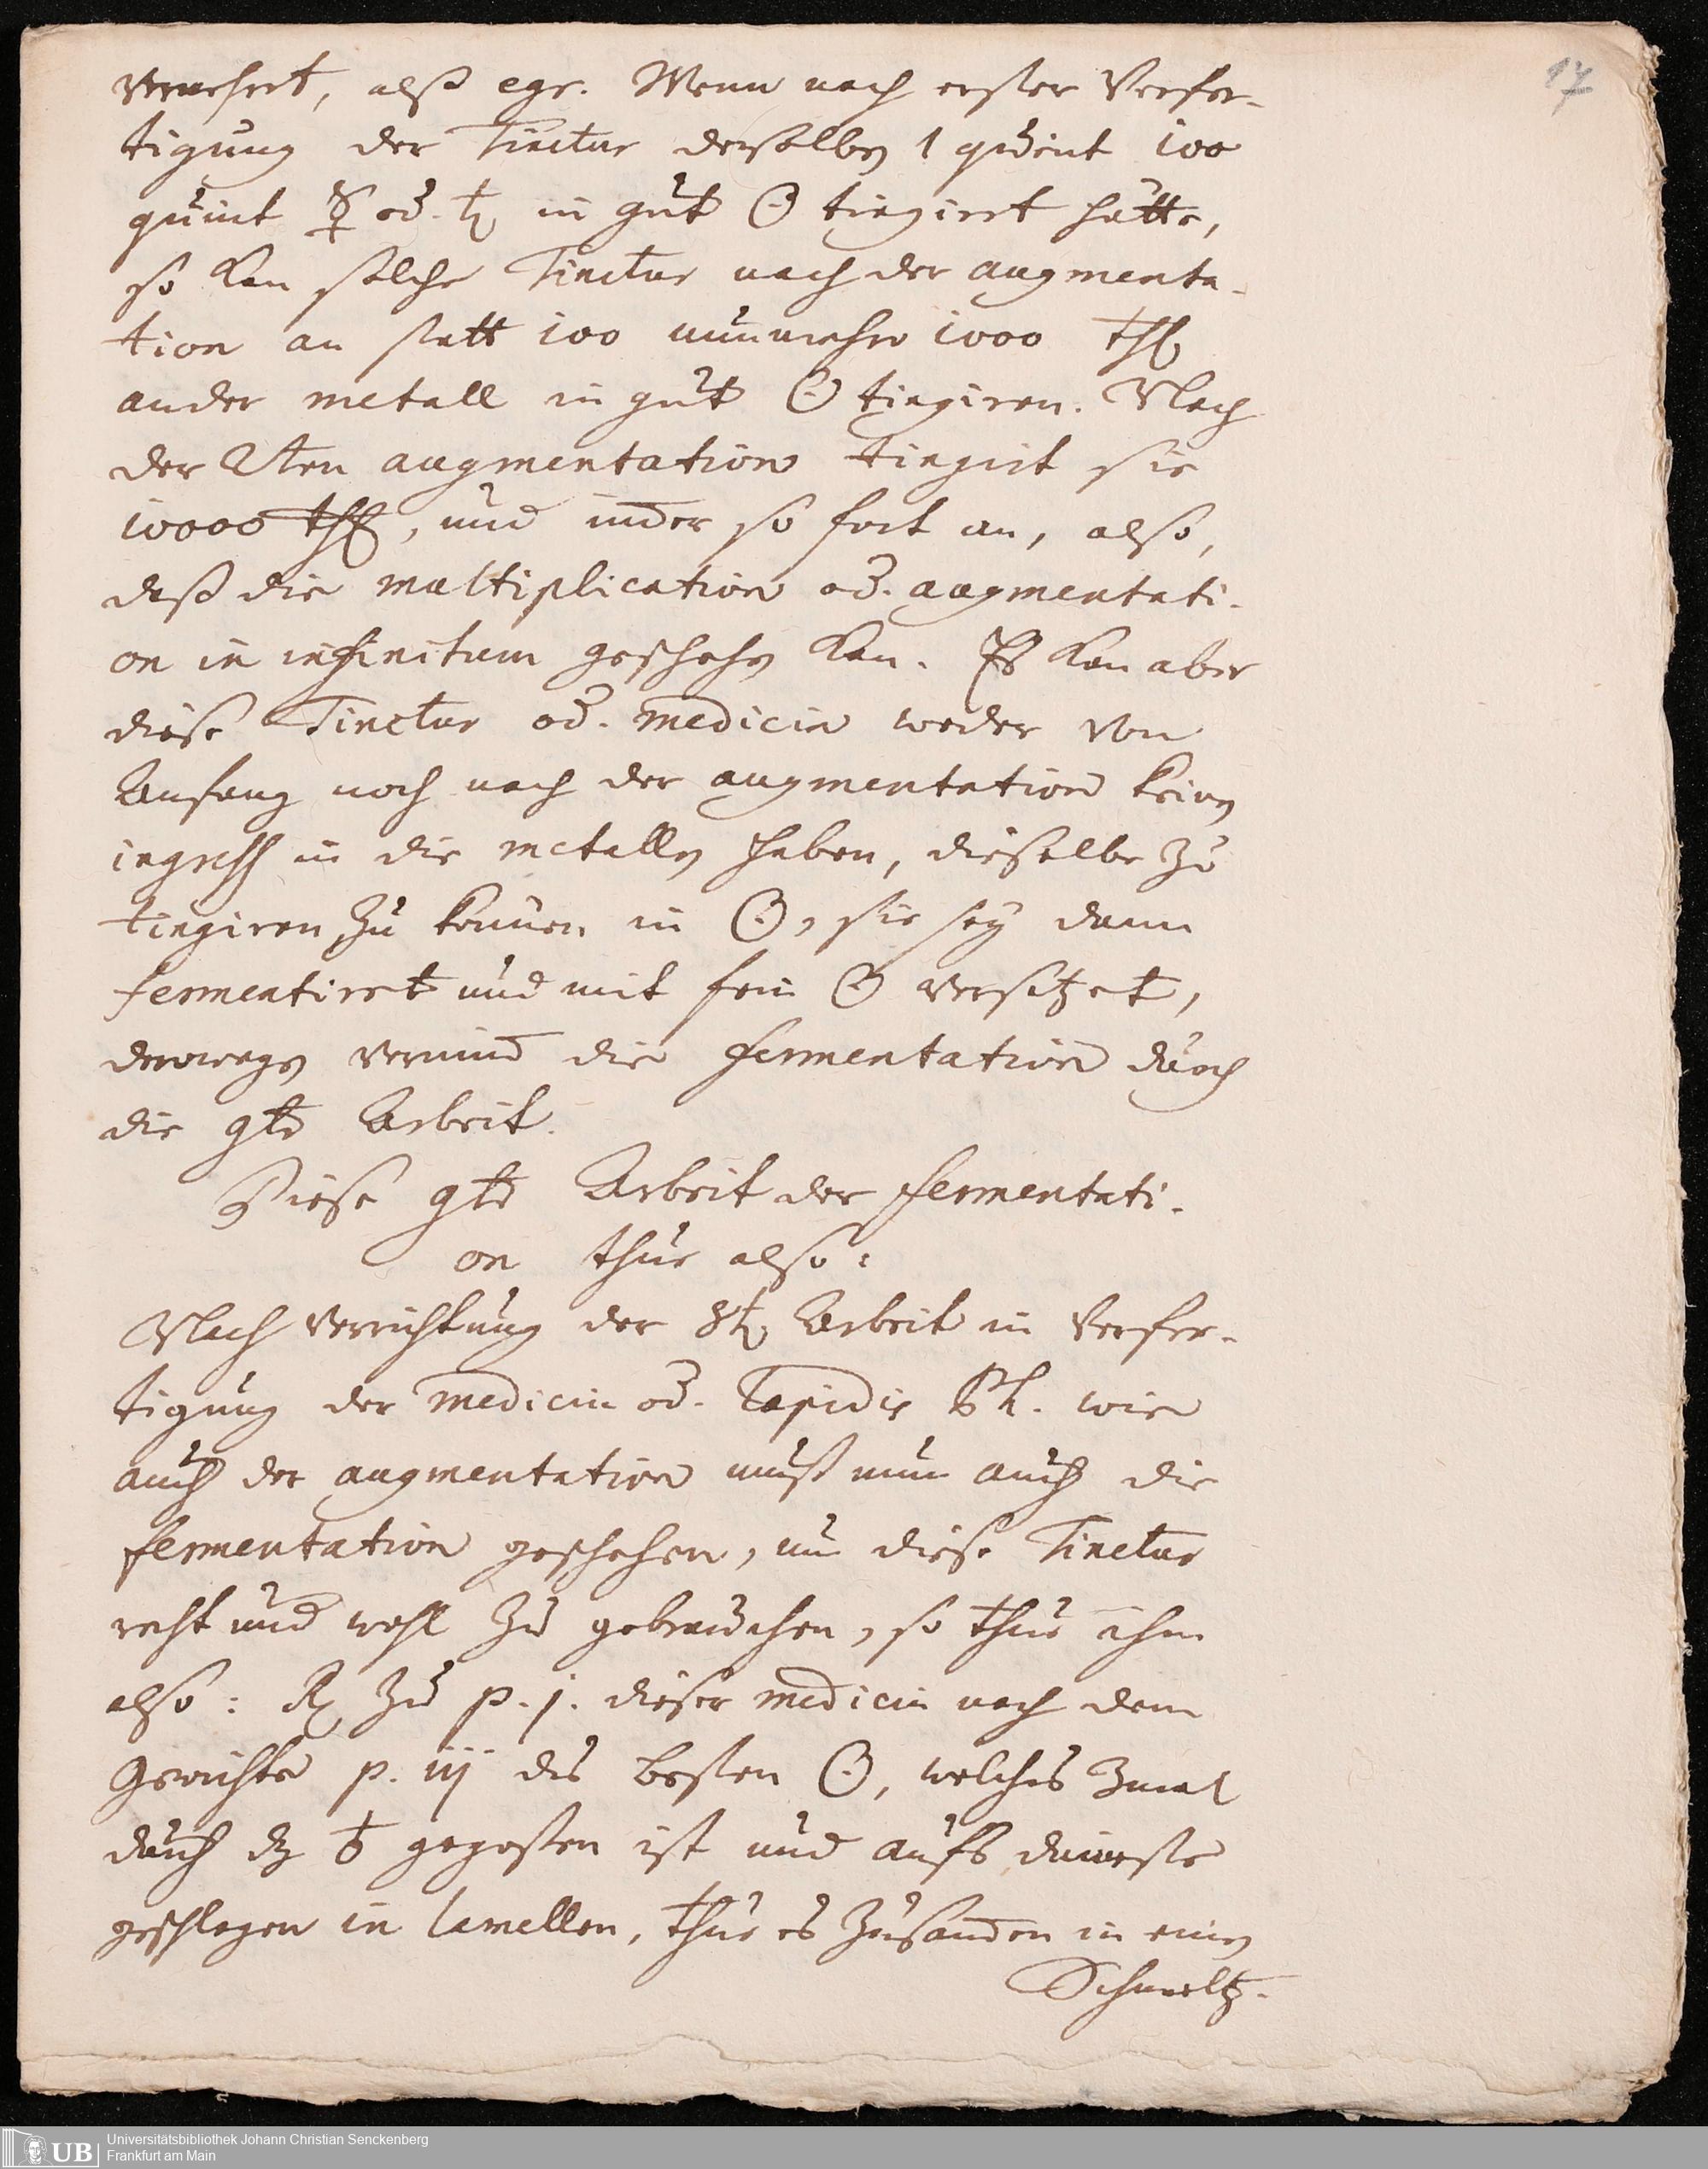 17
vermehret, alß egr. Wenn nach erster Verfer-
tigung der Tinctur derselben 1 quint 100
quint ☿ od. ♄ in gut ☉ tingiret hätte,
so kan solche Tinctur nach der augmenta-
tion an statt 100 nunmehro 1000 Thl
ander metall in gut ☉ tingiren. Nach
der 2ten augmentation tingirt sie
10000 Thl, und im̅er so fort an, also,
daß die multiplication od. augmentati-
on in infinitum geschehen kan. Es kan aber
diese Tinctur od. medicin weder von
Anfang noch nach der augmentation keinen
ingress in die metallen haben, dieselbe zu
tingiren zu können in ☉, sie sey dann
fermentiret und mit fein ☉ versetzet,
derowegen vernim̅ die fermentation durch
die 9te Arbeit.
Diese 9te Arbeit der fermentati-
on thue also:
Nach Verrichtung der 8ten Arbeit in Verfer-
tigung der medicin od. Lapidis Ph. wie
auch der augmentation muß nun auch die
fermentation geschehen, um diese Tinctur
recht und wohl zu gebrauchen, so thue ihm
also: ℞ zu p. j. dieser medicin nach dem
Gewichte p. iij des besten ☉, welches 3mal
durch dz ♁ gegossen ist und aufs dünneste
geschlagen in lamellen, thue es zusam̅en in einen
Schmeltz-
Universitätsbibliothek Johann Christian Senckenberg
UB Frankfurt am Main